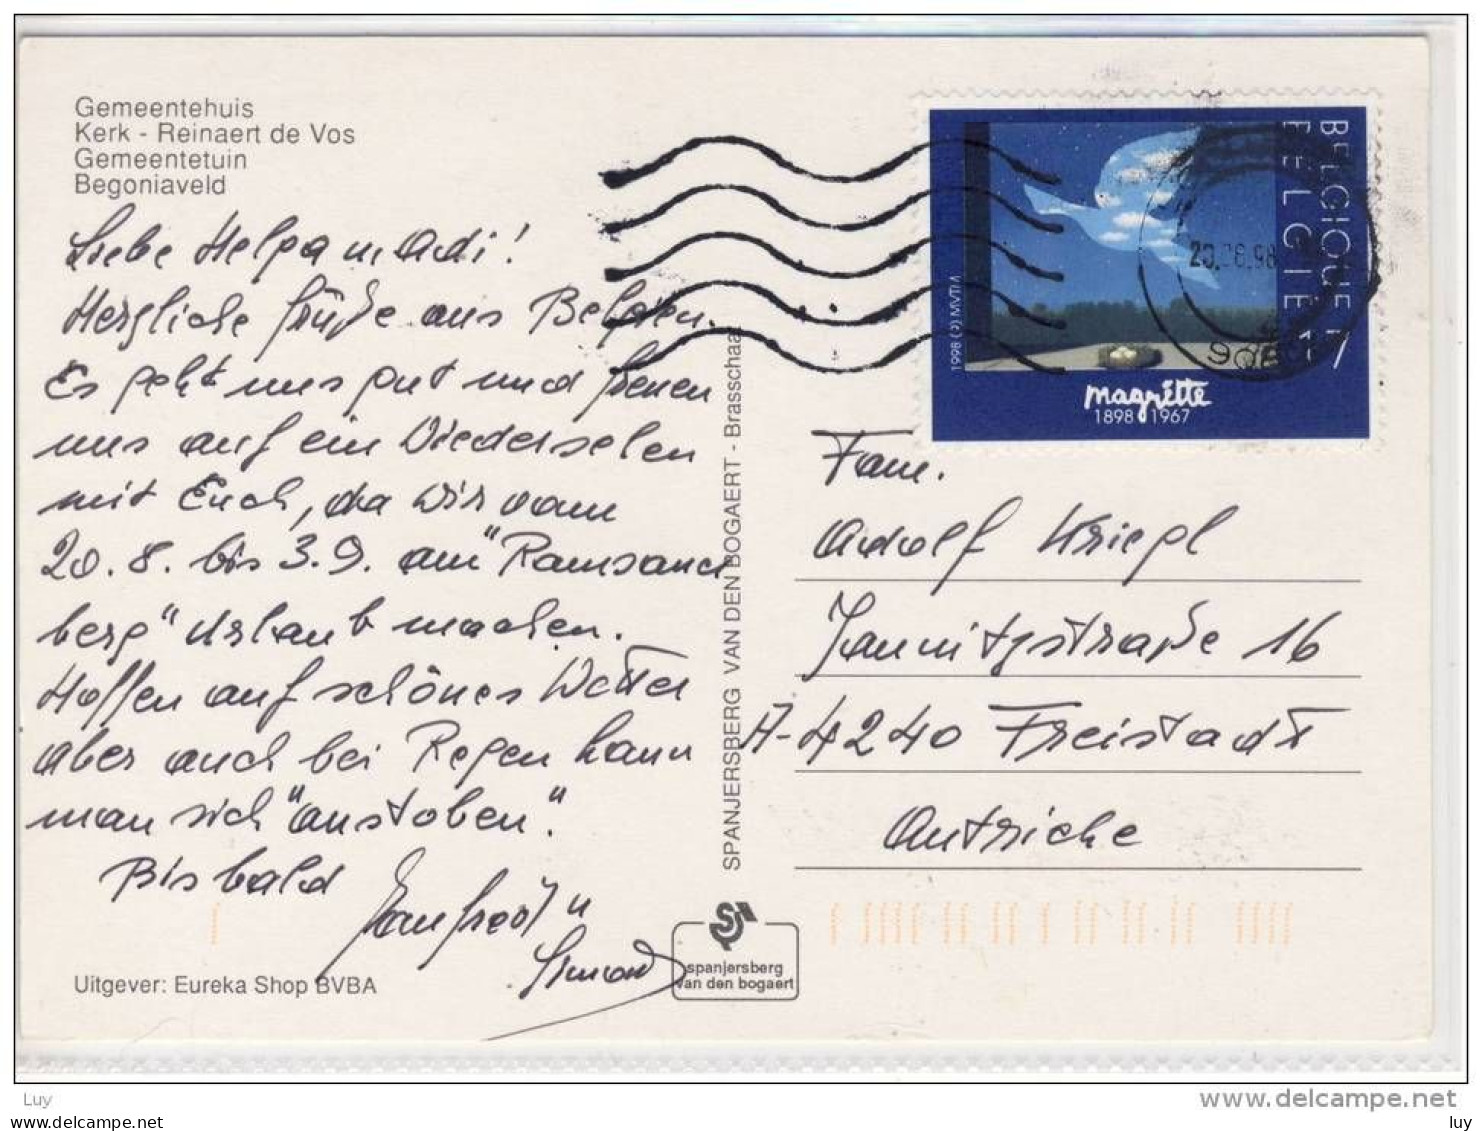 Gemeentehuis
Kerk - Reinaert de Vos
Gemeentetuin
Begoniaveld
Liebe Helga u. Adi!
Herzliche Grüße aus Belgien.
Es geht uns gut und freuen
uns auf ein Wiedersehen
mit Euch, da wir vom
20.8. bis 3.9. am "Ramsauer
berg" Urlaub machen.
Hoffen auf schönes Wetter
aber auch bei Regen kann
man sich "austoben".
Bis bald
Manfred u
Uitgever: Eureka Shop BVBA
SPANJERSBERG VAN DEN BOGAERT - Brasschaat
spanjersberg
van den bogaert
BELGIQUE 17
BELGIË
1998 MVTM
magritte
1898 1967
.98
Fam.
Adolf Kriegl
Jaunitzstraße 16
A-4240 Freistadt
Autriche
Luy
www.delcampe.net
luy